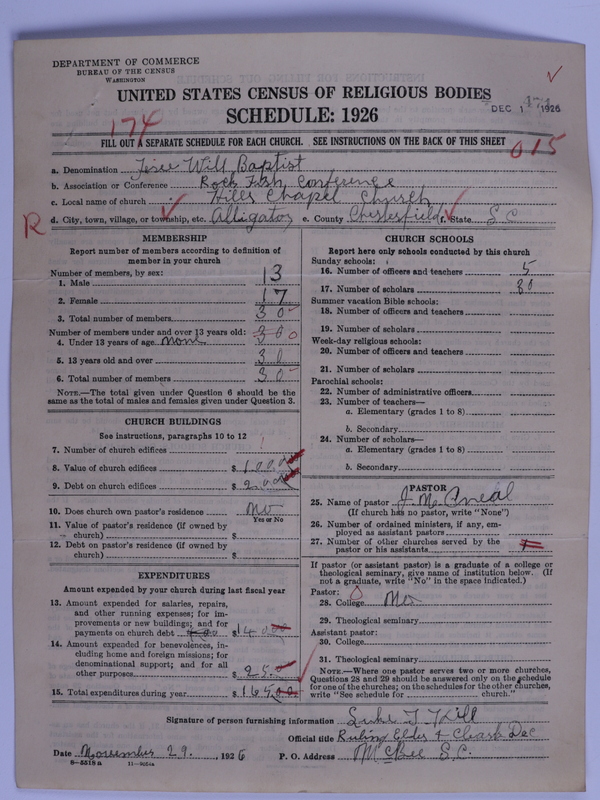 DEPARTMENT OF COMMERCE
BUREAU OF THE CENSUS
WASHINGTON
UNITED STATES CENSUS OF RELIGIOUS BODIES
SCHEDULE: 1926
DEC 1 1926
174
015
FILL OUT A SEPARATE SCHEDULE FOR EACH CHURCH. SEE INSTRUCTIONS ON THE BACK OF THIS SHEET
a. Denomination Free Will Baptist
b. Association or Conference Rock Fish Conference
c. Local name of church Hills Chapel Church
R d. City, town, village, or township, etc. Alligator e. County Chesterfield f. State S.C.
MEMBERSHIP
Report number of members according to definition of
member in your church
Number of members, by sex:
1. Male 13
2. Female 17
3. Total number of members 30
Number of members under and over 13 years old:
4. Under 13 years of age none
5. 13 years old and over 30
6. Total number of members 30
NOTE.—The total given under Question 6 should be the
same as the total of males and females given under Question 3.
CHURCH BUILDINGS
See instructions, paragraphs 10 to 12
7. Number of church edifices 1
8. Value of church edifices $ 1000
9. Debt on church edifices $ 200
10. Does church own pastor's residence No
Yes or No
11. Value of pastor's residence (if owned by
church) $
12. Debt on pastor's residence (if owned by
church) $
EXPENDITURES
Amount expended by your church during last fiscal year
13. Amount expended for salaries, repairs,
and other running expenses; for im-
provements or new buildings; and for
payments on church debt $ 140
14. Amount expended for benevolences, in-
cluding home and foreign missions; for
denominational support; and for all
other purposes $ 25.00
15. Total expenditures during year $ 165.00
CHURCH SCHOOLS
Report here only schools conducted by this church
Sunday schools:
16. Number of officers and teachers 5
17. Number of scholars 80
Summer vacation Bible schools:
18. Number of officers and teachers
19. Number of scholars
Week-day religious schools:
20. Number of officers and teachers
21. Number of scholars
Parochial schools:
22. Number of administrative officers
23. Number of teachers—
a. Elementary (grades 1 to 8)
b. Secondary
24. Number of scholars—
a. Elementary (grades 1 to 8)
b. Secondary
PASTOR
25. Name of pastor J. McCneal
(If church has no pastor, write "None")
26. Number of ordained ministers, if any, em-
ployed as assistant pastors
27. Number of other churches served by the
pastor or his assistants
If pastor (or assistant pastor) is a graduate of a college or
theological seminary, give name of institution below. (If
not a graduate, write "No" in the space indicated.)
Pastor:
28. College No
29. Theological seminary
Assistant pastor:
30. College
31. Theological seminary
NOTE.—Where one pastor serves two or more churches,
Questions 28 and 29 should be answered only on the schedule
for one of the churches; on the schedules for the other churches,
write "See schedule for church."
Signature of person furnishing information Luke T Hill
Official title Ruling Elder & Clerk Dec
Date November 29, 1926 P. O. Address McBee S.C.
8-5518a 11-9004a